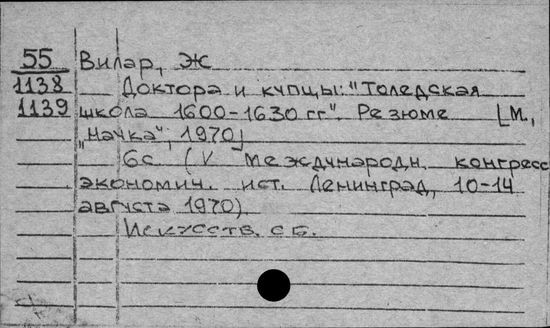 55 Вилар, Ж
1138 Доктора и купцы: "Толедская
1139 школа 1600-1630 гг". Резюме [М.,
„Наука", 1970]
6с (V международн. конгресс
экономич. ист. Ленинград, 10-14
августа 1970)
Искусств. сб.